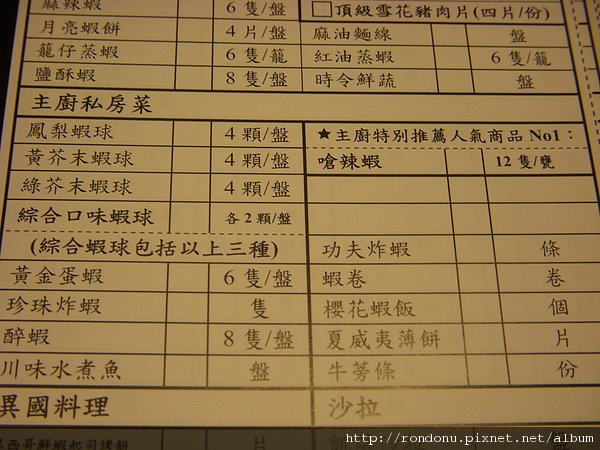 麻辣蝦 6 隻/盤
月亮蝦餅 4 片/盤
籠仔蒸蝦 6 隻/籠
鹽酥蝦 8 隻/盤
主廚私房菜
鳳梨蝦球 4 顆/盤
黃芥末蝦球 4 顆/盤
綠芥末蝦球 4 顆/盤
綜合口味蝦球 各 2 顆/盤
(綜合蝦球包括以上三種)
黃金蛋蝦 6 隻/盤
珍珠炸蝦 隻
醉蝦 8 隻/盤
川味水煮魚 盤
異國料理
西哥鮮蝦起司烤餅 片
頂級雪花豬肉片(四片/份)
麻油麵線 盤
紅油蒸蝦 6 隻/籠
時令鮮蔬 盤
★主廚特別推薦人氣商品 No1：
嗆辣蝦 12 隻/甕
功夫炸蝦 條
蝦卷 卷
櫻花蝦飯 個
夏威夷薄餅 片
牛蒡條 份
沙拉
http://rondonu.pixnet.net/album